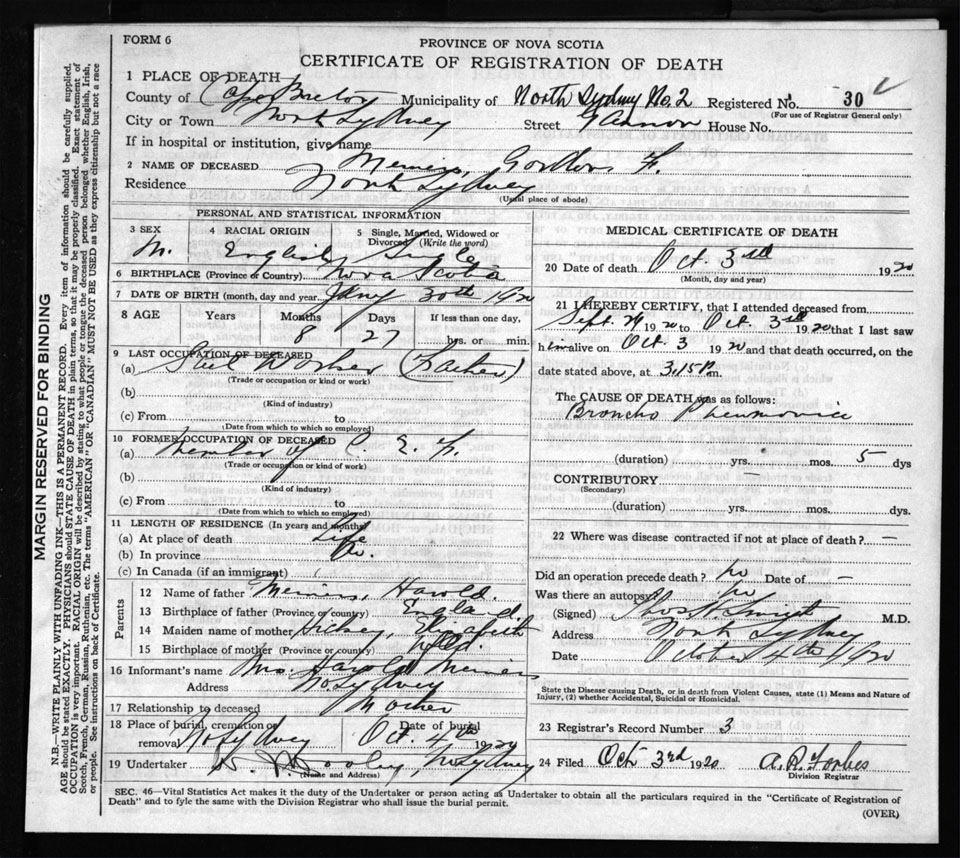 FORM 6
PROVINCE OF NOVA SCOTIA
CERTIFICATE OF REGISTRATION OF DEATH
MARGIN RESERVED FOR BINDING
N.B.—WRITE PLAINLY WITH UNFADING INK—THIS IS A PERMANENT RECORD. Every item of information should be carefully supplied.
AGE should be stated EXACTLY. PHYSICIANS should STATE CAUSE OF DEATH in plain terms, so that it may be properly classified. Exact statement of
OCCUPATION is very important. RACIAL ORIGIN will be described by stating to what people or tongue the deceased person belonged whether English, Irish,
Scotch, French, German, Russian, Ruthenian, etc. The terms "AMERICAN" OR "CANADIAN" MUST NOT BE USED as they express citizenship but not a race
or people. See instructions on back of Certificate.
1 PLACE OF DEATH
County of Cape Breton Municipality of North Sydney No. 2 Registered No. 30
(For use of Registrar General only)
City or Town North Sydney Street House No.
If in hospital or institution, give name
2 NAME OF DECEASED Gordon F.
Residence North Sydney
(Usual place of abode)
PERSONAL AND STATISTICAL INFORMATION
3 SEX 4 RACIAL ORIGIN 5 Single, Married, Widowed or Divorced (Write the word)
M. English Single
6 BIRTHPLACE (Province or Country) Nova Scotia
7 DATE OF BIRTH (month, day and year) 30th 1920
8 AGE Years Months Days If less than one day,
8 27 hrs. or min.
9 LAST OCCUPATION OF DECEASED
(a) Steel Worker (Father)
(Trade or occupation or kind or work)
(b)
(Kind of industry)
(c) From to
(Date from which to which so employed)
10 FORMER OCCUPATION OF DECEASED
(a) Member of C. E. F.
(Trade or occupation or kind of work)
(b)
(Kind of industry)
(c) From to
(Date from which to which so employed)
11 LENGTH OF RESIDENCE (In years and months)
(a) At place of death Life
(b) In province Do.
(c) In Canada (if an immigrant)
Parents
12 Name of father Harold.
13 Birthplace of father (Province or country) England
14 Maiden name of mother Elizabeth
15 Birthplace of mother (Province or country) Nfld.
16 Informant's name Mrs. Harold
Address No Sydney
17 Relationship to deceased Mother
18 Place of burial, cremation or removal No Sydney Date of burial Oct. 4th 1920
19 Undertaker No Sydney
(Name and Address)
MEDICAL CERTIFICATE OF DEATH
20 Date of death Oct. 3rd 1920
(Month, day and year)
21 I HEREBY CERTIFY, that I attended deceased from
Sept. 1920 to Oct. 3rd 1920 that I last saw
him alive on Oct. 3 1920 and that death occurred, on the
date stated above, at 3.15 P.m.
The CAUSE OF DEATH was as follows:
Broncho Pneumonia
(duration) yrs. mos. 5 dys
CONTRIBUTORY —
(Secondary)
(duration) yrs. mos. dys.
22 Where was disease contracted if not at place of death? —
Did an operation precede death? no Date of —
Was there an autopsy? no
(Signed) M.D.
Address North Sydney
Date October 4th 1920
State the Disease causing Death, or in death from Violent Causes, state (1) Means and Nature of
Injury, (2) whether Accidental, Suicidal or Homicidal.
23 Registrar's Record Number 3
24 Filed Oct. 3rd 1920 A. R. Forbes
Division Registrar
SEC. 46—Vital Statistics Act makes it the duty of the Undertaker or person acting as Undertaker to obtain all the particulars required in the "Certificate of Registration of
Death" and to fyle the same with the Division Registrar who shall issue the burial permit.
(OVER)